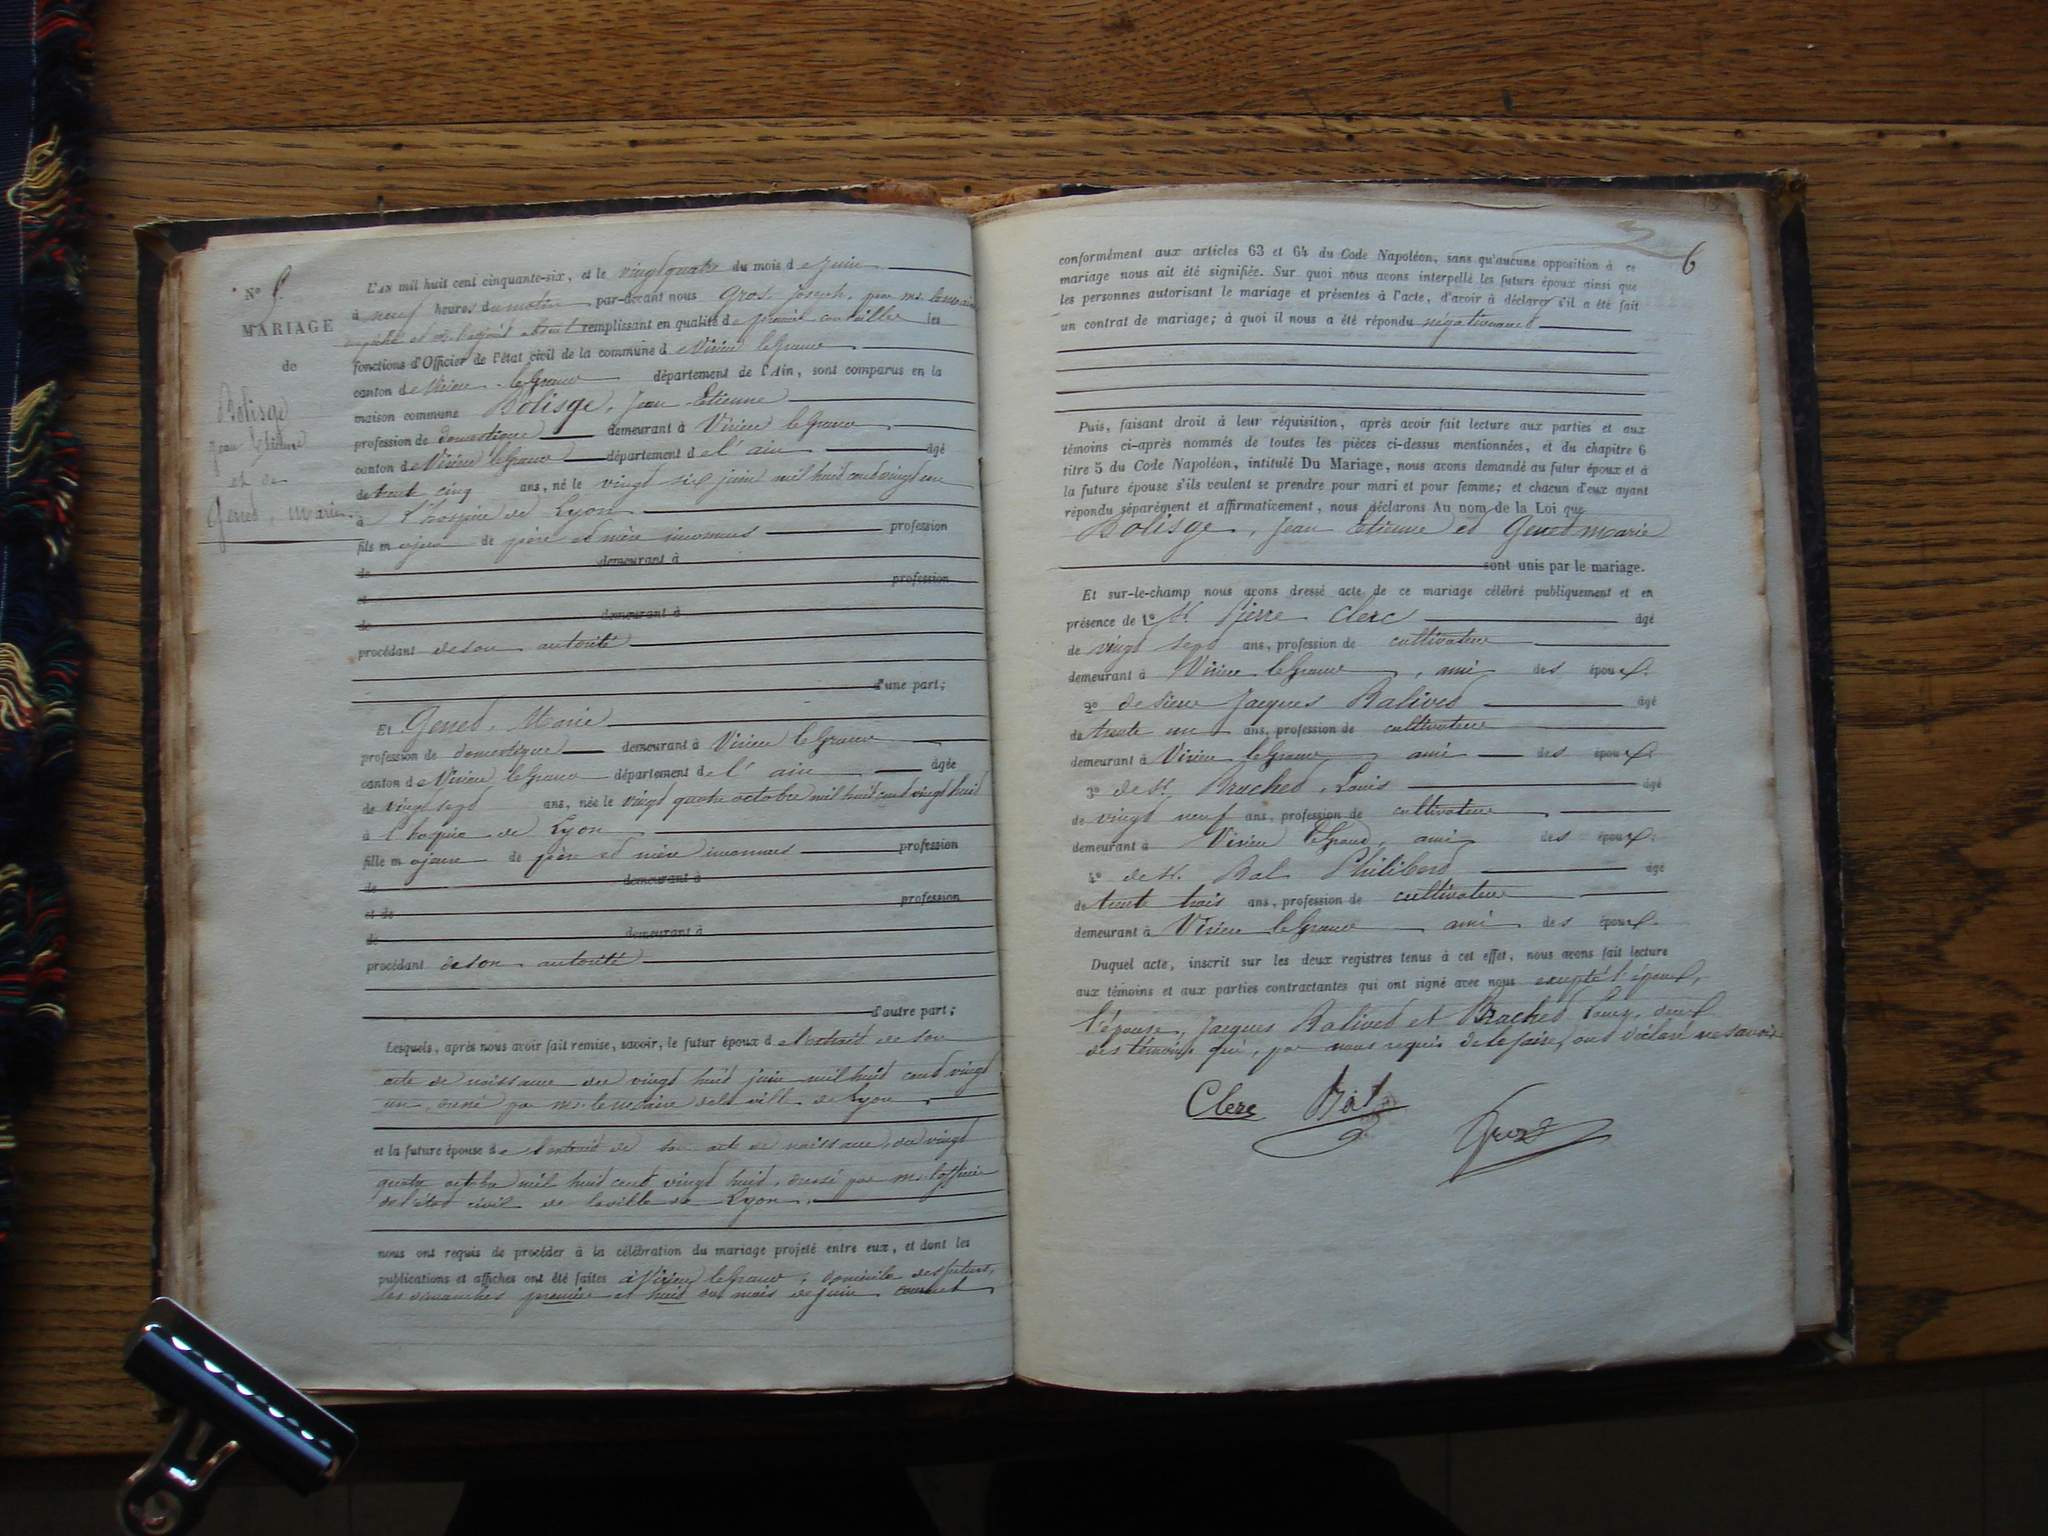 N° 5.
MARIAGE
de
Bolisge
Jean Etienne
et de
Genet, Marie
L'AN mil huit cent cinquante-six, et le vingt quatre du mois de Juin
à neuf heures du matin par-devant nous Gros, Joseph, pour mr. le maire
empêché et l'adjoint absent remplissant en qualité de premier conseiller les
fonctions d'Officier de l'état civil de la commune de Virieu le Grand
canton de Virieu-le Grand département de l'Ain, sont comparus en la
maison commune Bolisge, Jean Etienne
profession de domestique demeurant à Virieu le Grand
canton de Virieu le Grand département de l'ain âgé
de trente cinq ans, né le vingt six juin mil huit cent vingt un
à l'hospice de Lyon
fils majeur de père et mère inconnus profession
de demeurant à
et profession
de demeurant à
procédant de son autorité
d'une part;
Et Genet, Marie
profession de domestique demeurant à Virieu le Grand
canton de Virieu le Grand département de l'ain âgée
de vingt sept ans, née le vingt quatre octobre mil huit cent vingt huit
à l'hospice de Lyon
fille majeure de père et mère inconnus profession
de demeurant à
et de profession
de demeurant à
procédant de son autorité
d'autre part;
Lesquels, après nous avoir fait remise, savoir, le futur époux de l'extrait de son
acte de naissance du vingt huit juin mil huit cent vingt
un, dressé par mr. le maire de la ville de Lyon
et la future épouse de l'extrait de son acte de naissance, du vingt
quatre octobre mil huit cent vingt huit, dressé par mr. l'officier
de l'état civil de la ville de Lyon.
nous ont requis de procéder à la célébration du mariage projeté entre eux, et dont les
publications et affiches ont été faites à Virieu le Grand, domicile des futurs,
les dimanches premier et huit du mois de juin courant
6
conformément aux articles 63 et 64 du Code Napoléon, sans qu'aucune opposition à ce
mariage nous ait été signifiée. Sur quoi nous avons interpellé les futurs époux ainsi que
les personnes autorisant le mariage et présentes à l'acte, d'avoir à déclarer s'il a été fait
un contrat de mariage; à quoi il nous a été répondu négativement
Puis, faisant droit à leur réquisition, après avoir fait lecture aux parties et aux
témoins ci-après nommés de toutes les pièces ci-dessus mentionnées, et du chapitre 6
titre 5 du Code Napoléon, intitulé Du Mariage, nous avons demandé au futur époux et à
la future épouse s'ils veulent se prendre pour mari et pour femme; et chacun d'eux ayant
répondu séparément et affirmativement, nous déclarons Au nom de la Loi que
Bolisge, Jean Etienne et Genet Marie
sont unis par le mariage.
Et sur-le-champ nous avons dressé acte de ce mariage célébré publiquement et en
présence de 1° Sr. Pierre Clerc âgé
de vingt sept ans, profession de cultivateur
demeurant à Virieu le Grand, ami des époux.
2° de sieur Jacques Balivet âgé
de trente un ans, profession de cultivateur
demeurant à Virieu le Grand ami des époux
3° de Sr. Brachet, Louis âgé
de vingt neuf ans, profession de cultivateur
demeurant à Virieu le Grand, ami des époux.
4° de Sr. Bal Philibert âgé
de trente trois ans, profession de cultivateur
demeurant à Virieu le Grand ami des époux.
Duquel acte, inscrit sur les deux registres tenus à cet effet, nous avons fait lecture
aux témoins et aux parties contractantes qui ont signé avec nous excepté l'époux,
l'épouse, Jacques Balivet et Brachet Louis, deux
des témoins qui, par nous requis de le faire, ont déclaré ne savoir
Clerc Bal
Gros